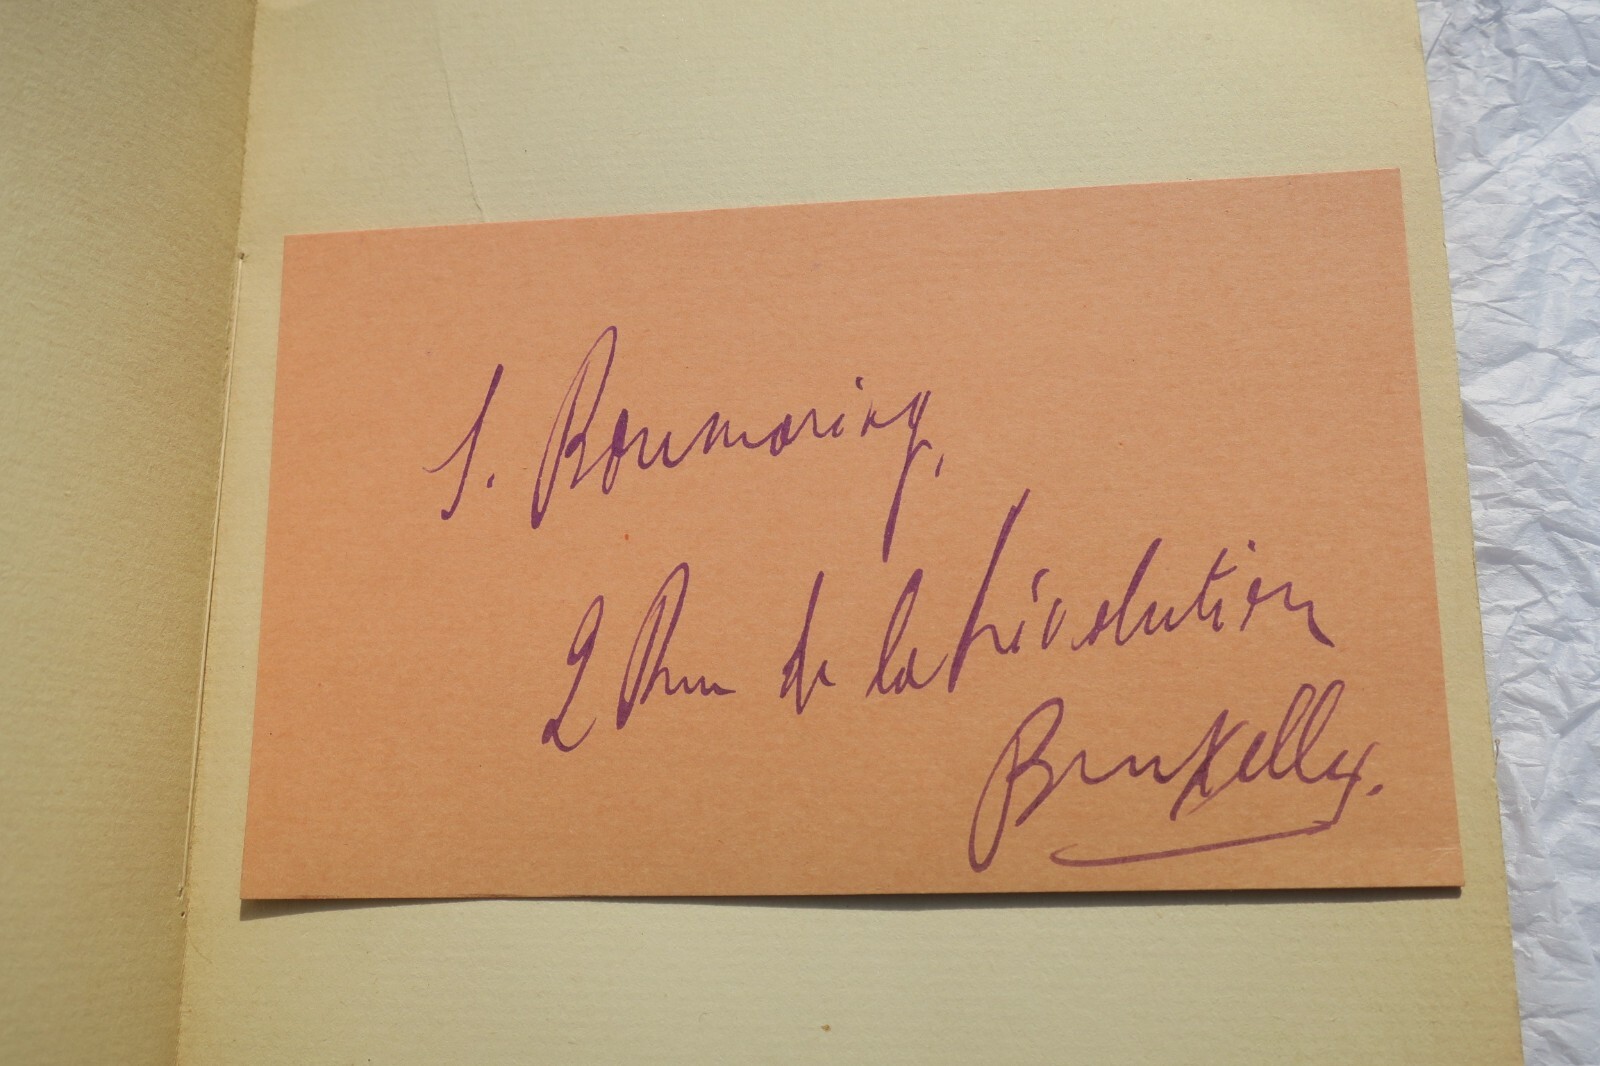 2 Rue de la Révolution
Bruxelles.